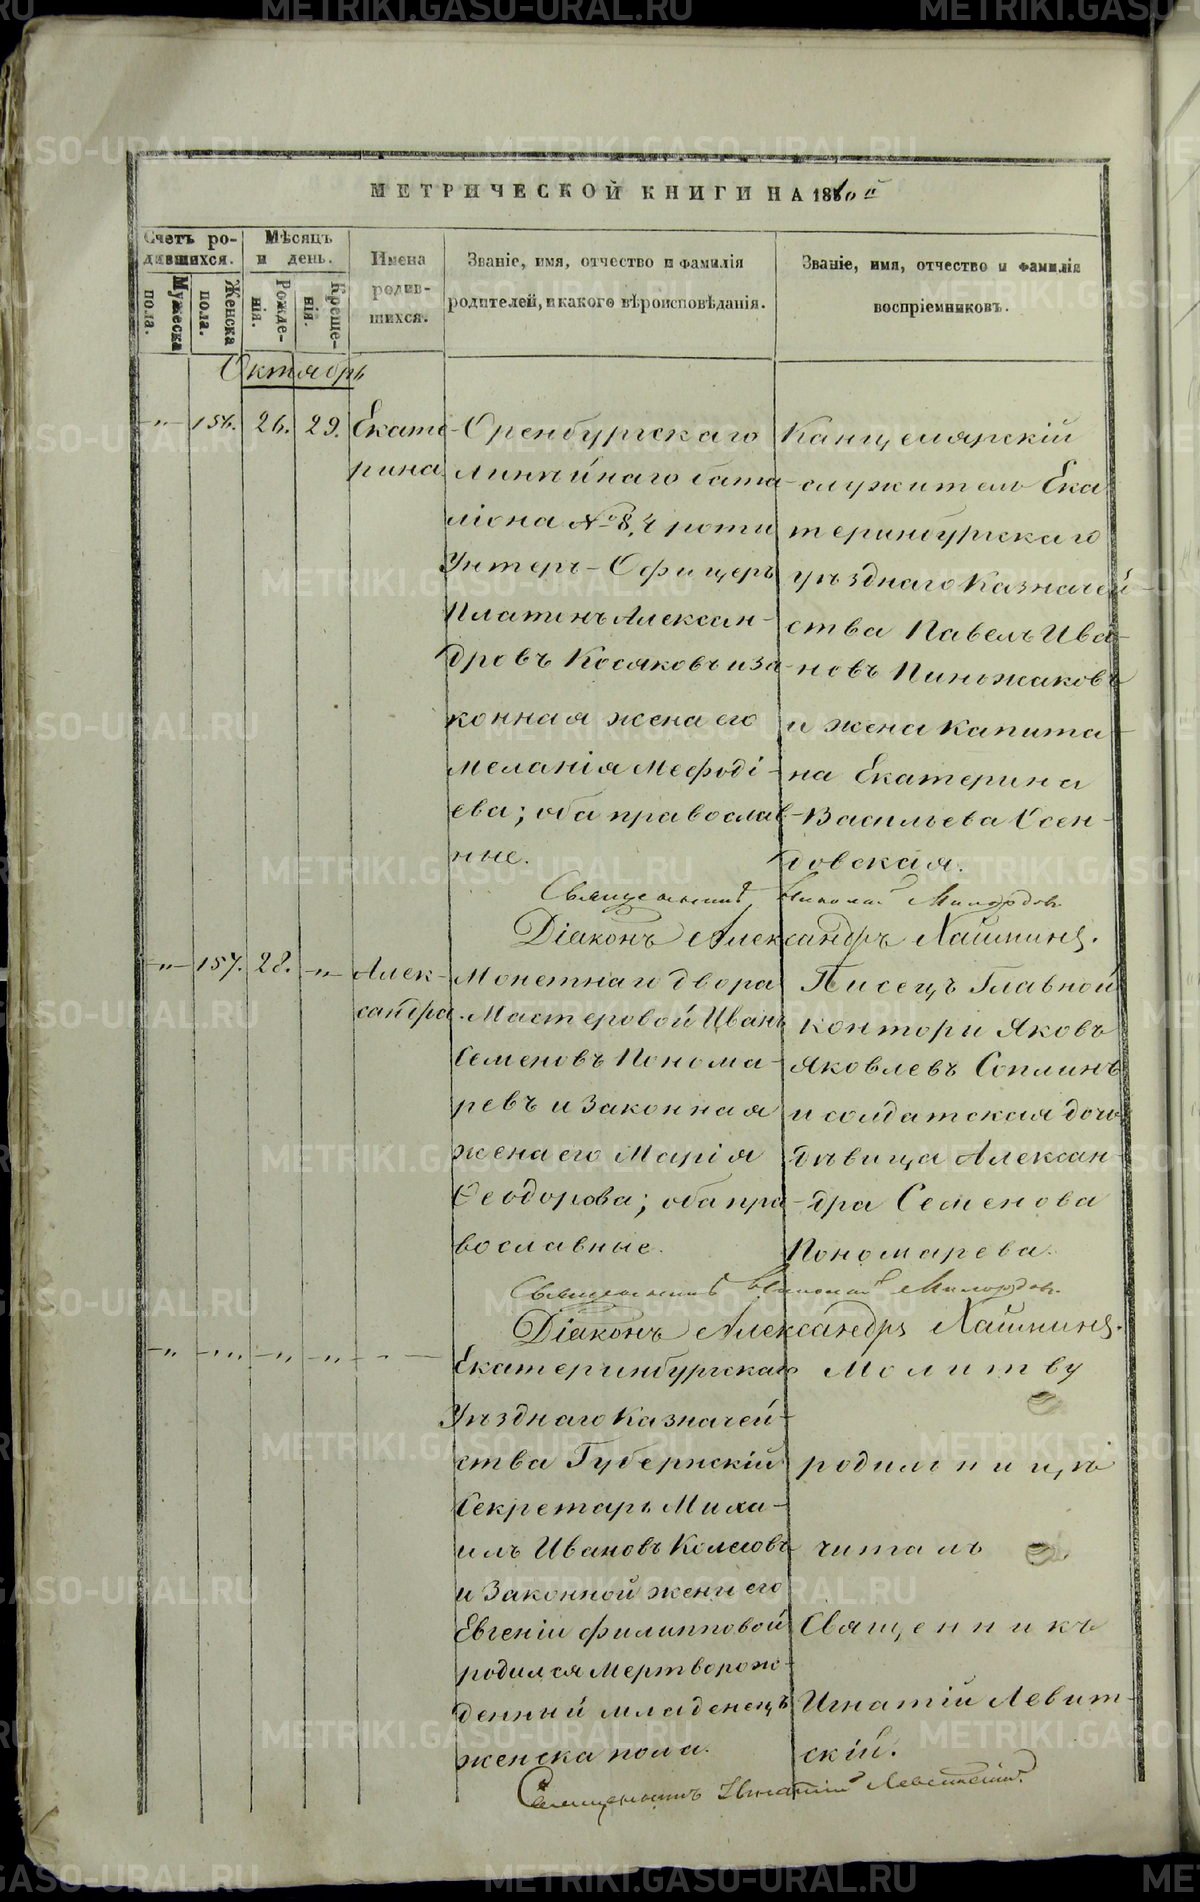 МЕТРИЧЕСКОЙ КНИГИ НА 1860й
Счетъ ро-
дившихся.
Мѣсяцъ
и день.
Имена
родив-
шихся.
Званіе, имя, отчество и фамилія
родителей, и какого вѣроисповѣданія.
Званіе, имя, отчество и фамилія
воспріемниковъ.
Мужеска
пола.
Женска
пола.
Рожде-
нія.
Креще-
нія.
Октябрь
-"- 156. 26. 29.
Екате-
рина.
Оренбургскаго
Линѣйнаго бата-
ліона № 8, 4 роты
Унтеръ-Офицеръ
Платонъ Алексан-
дровъ Косяковъ и за-
конная жена его
Меланія Мефоді-
ева; оба православ-
ные.
Канцелярскій
служитель Ека
теринбургскаго
уѣзднаго Казначей-
ства Павелъ Ива-
новъ Пиножаковъ
и жена Капита-
на Екатерина
Васильева Осен-
довская.
Священникъ Николай Милордовъ.
Діаконъ Александръ Хашминъ.
-"- 157. 28. -"-
Алек-
сандра.
Монетнаго двора
Мастеровой Иванъ
Семеновъ Понома-
ревъ и законная
жена его Марія
Ѳеодорова; оба пра-
вославные.
Писецъ Главной
конторы Яковъ
Яковлевъ Соплинъ
и солдатская дочь
дѣвица Алексан-
дра Семенова
Пономарева.
Священникъ Николай Милордовъ.
Діаконъ Александръ Хашминъ.
-"- -"- -"- -"- -"-
Екатеринбургскаго
Уѣзднаго Казначей-
ства Губернскій
Секретарь Миха-
илъ Ивановъ Колесовъ
и Законной жены его
Евгеніи Филипповой
родился мертворож-
денный младенецъ
женска пола.
Молитву
родильницѣ
читалъ
Священникъ
Игнатій Левит-
скій.
Священникъ Игнатій Левитскій.
METRIKI.GASO-URAL.RU